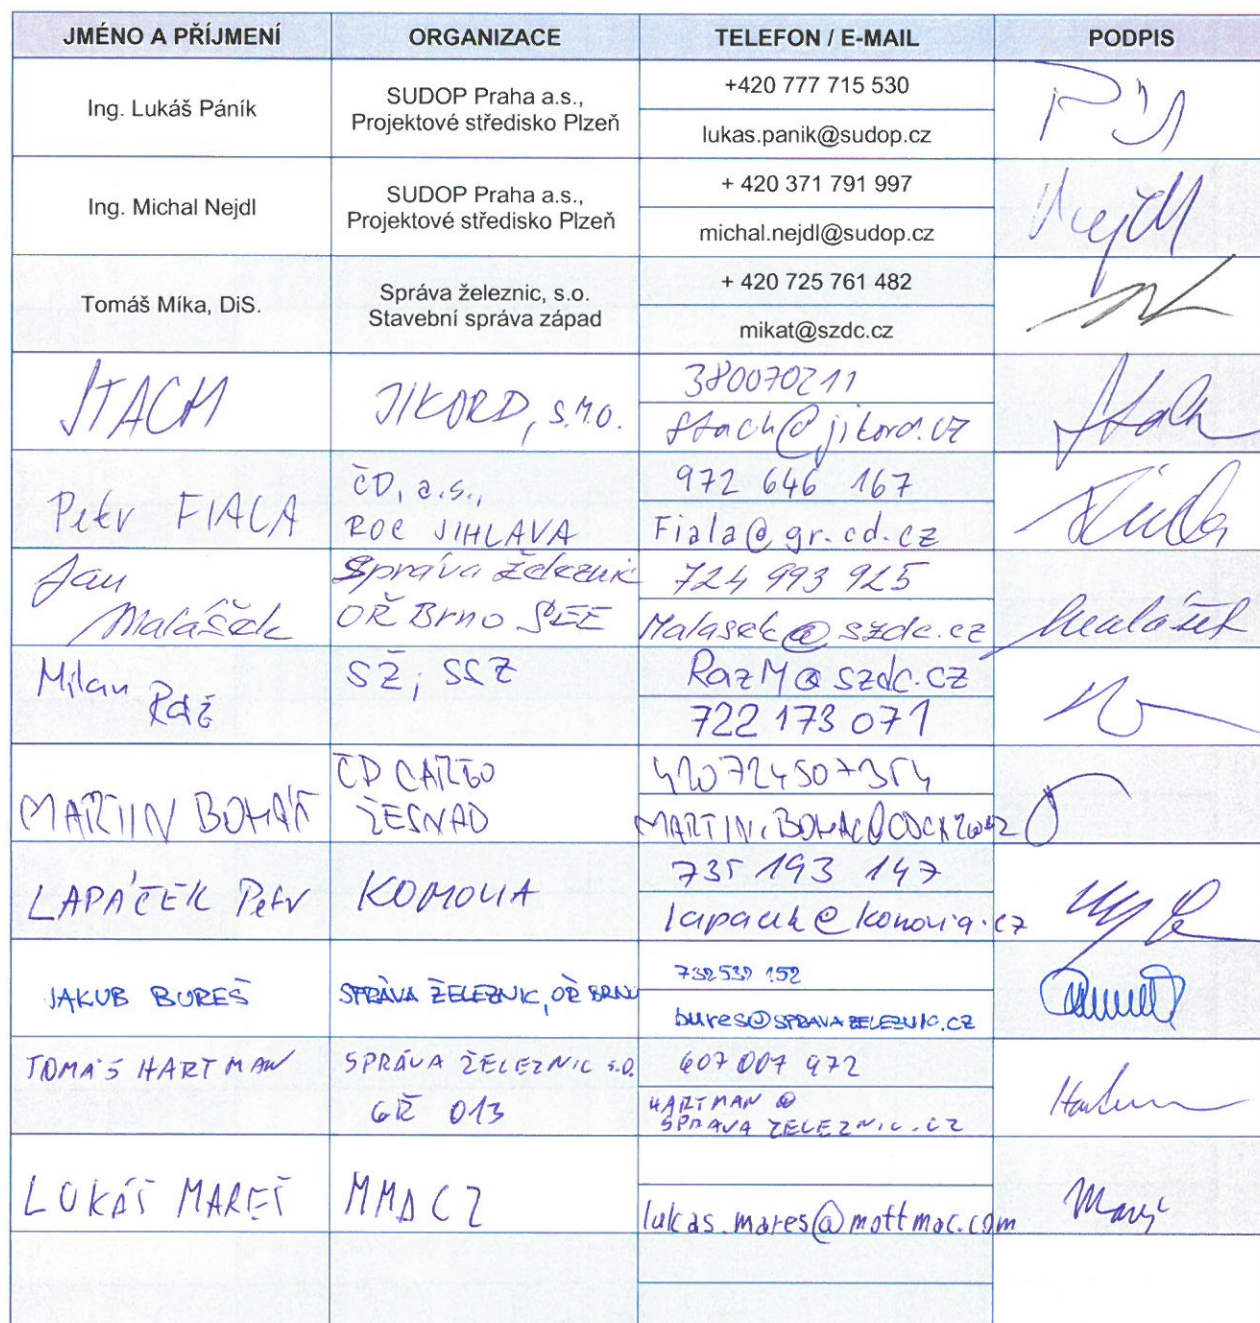 JMÉNO A PŘÍJMENÍ ORGANIZACE TELEFON / E-MAIL PODPIS
Ing. Lukáš Páník
SUDOP Praha a.s.,
Projektové středisko Plzeň
+420 777 715 530
lukas.panik@sudop.cz
Ing. Michal Nejdl
SUDOP Praha a.s.,
Projektové středisko Plzeň
+ 420 371 791 997
michal.nejdl@sudop.cz
Nejdl
Tomáš Míka, DiS.
Správa železnic, s.o.
Stavební správa západ
+ 420 725 761 482
mikat@szdc.cz
STACH
JIKORD, s.r.o.
380070211
stach@jikord.cz
Stach
Petr FIALA
ČD, a.s.,
ROC JIHLAVA
972 646 167
Fiala@gr.cd.cz
Fiala
Jan
Malášek
Správa železnic
OŘ Brno SEE
724 993 925
Malasek@szdc.cz
Malášek
Milan
Ráž
SŽ, SSZ
RazM@szdc.cz
722 173 071
MARTIN BOHÁČ
ČD CARGO
ŽESNAD
420724507354
LAPÁČEK Petr
KOMOVIA
735 193 147
JAKUB BUREŠ
SPRÁVA ŽELEZNIC, OŘ BRNO
732 532 152
bures@SPRAVAZELEZNIC.CZ
TOMÁŠ HARTMAN
SPRÁVA ŽELEZNIC s.o.
GŘ 013
607 007 972
HARTMAN @
SPRAVA ZELEZNIC.CZ
LUKÁŠ MAREŠ
MMD CZ
lukas.mares@mottmac.com
Mareš